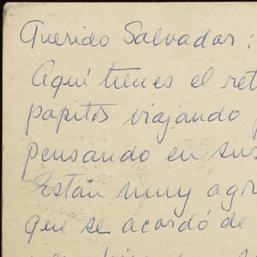 Querido Salvador:
Aqui tienes el ret
papitos viajando
pensando en sus
Están muy agr
que se acordó de